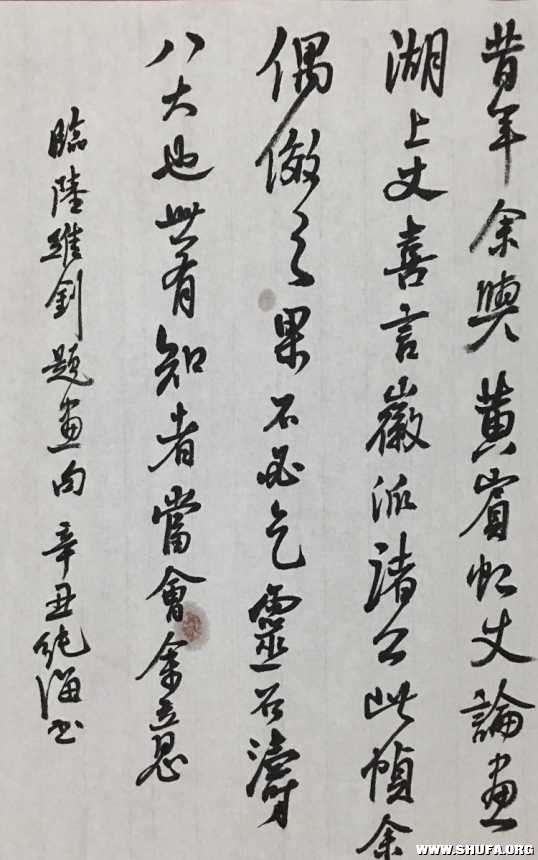 昔年余與黄賓虹丈論畫
湖上丈喜言徽派諸公此幀余
偶倣之果不必乞靈石濤
八大也世有知者當會余言
臨陸維釗題畫句 辛丑純湖书
WWW.SHUFA.ORG